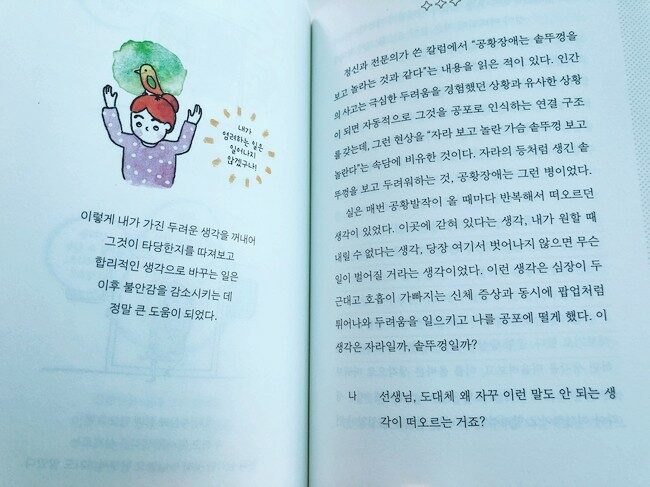 내가
염려하는 일은
일어나지
않겠구나!
이렇게 내가 가진 두려운 생각을 꺼내어
그것이 타당한지를 따져보고
합리적인 생각으로 바꾸는 일은
이후 불안감을 감소시키는 데
정말 큰 도움이 되었다.
정신과 전문의가 쓴 칼럼에서 “공황장애는 솥뚜껑을
보고 놀라는 것과 같다”는 내용을 읽은 적이 있다. 인간
의 사고는 극심한 두려움을 경험했던 상황과 유사한 상황
이 되면 자동적으로 그것을 공포로 인식하는 연결 구조
를 갖는데, 그런 현상을 “자라 보고 놀란 가슴 솥뚜껑 보고
놀란다”는 속담에 비유한 것이다. 자라의 등처럼 생긴 솥
뚜껑을 보고 두려워하는 것, 공황장애는 그런 병이었다.
실은 매번 공황발작이 올 때마다 반복해서 떠오르던
생각이 있었다. 이곳에 갇혀 있다는 생각, 내가 원할 때
내릴 수 없다는 생각, 당장 여기서 벗어나지 않으면 무슨
일이 벌어질 거라는 생각이었다. 이런 생각은 심장이 두
근대고 호흡이 가빠지는 신체 증상과 동시에 팝업처럼
튀어나와 두려움을 일으키고 나를 공포에 떨게 했다. 이
생각은 자라일까, 솥뚜껑일까?
나 선생님, 도대체 왜 자꾸 이런 말도 안 되는 생
각이 떠오르는 거죠?